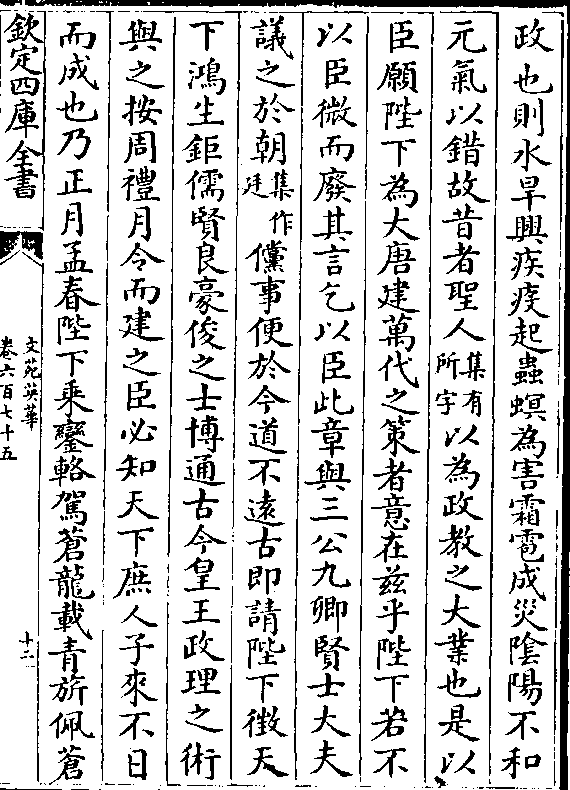 政也則水旱興疾疫起蟲螟為害霜雹成災陰陽不和
元氣以錯故昔者聖人集有所字以為政教之大業也是以
臣願陛下為大唐建萬代之策者意在兹乎陛下若不
以臣微而廢其言乞以臣此章與三公九卿賢士大夫
議之於朝集作廷儻事便於今道不逺古即請陛下徴天
下鴻生鉅儒賢良豪俊之士博通古今皇王政理之術
與之按周禮月令而建之臣必知天下庶人子來不日
而成也乃正月孟春陛下乘鑾輅駕蒼龍載青旂佩蒼
欽定四庫全書
文苑英華
卷六百七十五
十二